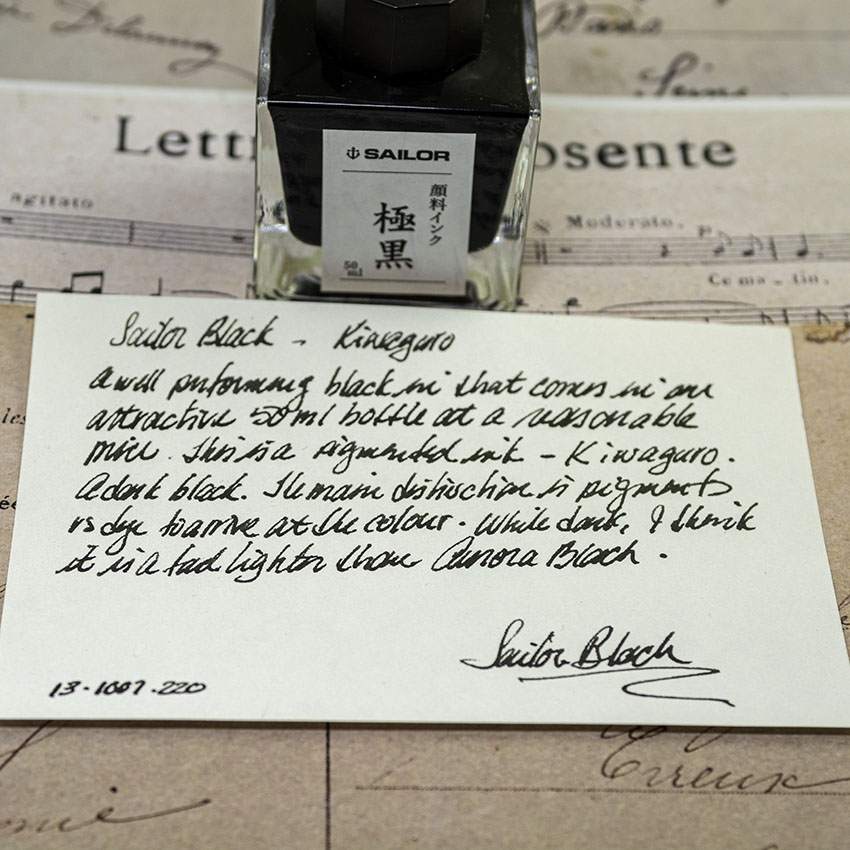 Lett
osente
agitato
Moderato.
Co ma - tin,
SAILOR
顔料インク
極黒
50 ml
Sailor Black - Kiwaguro
A well performing black ink that comes in an
attractive 50 ml bottle at a reasonable
price. This is a pigmented ink - Kiwaguro.
A dark black. The main distinction is pigments
vs dye to arrive at the colour. While dark, I think
it is a tad lighter than Aurora Black.
Sailor Black
13-1007-220
Erreux